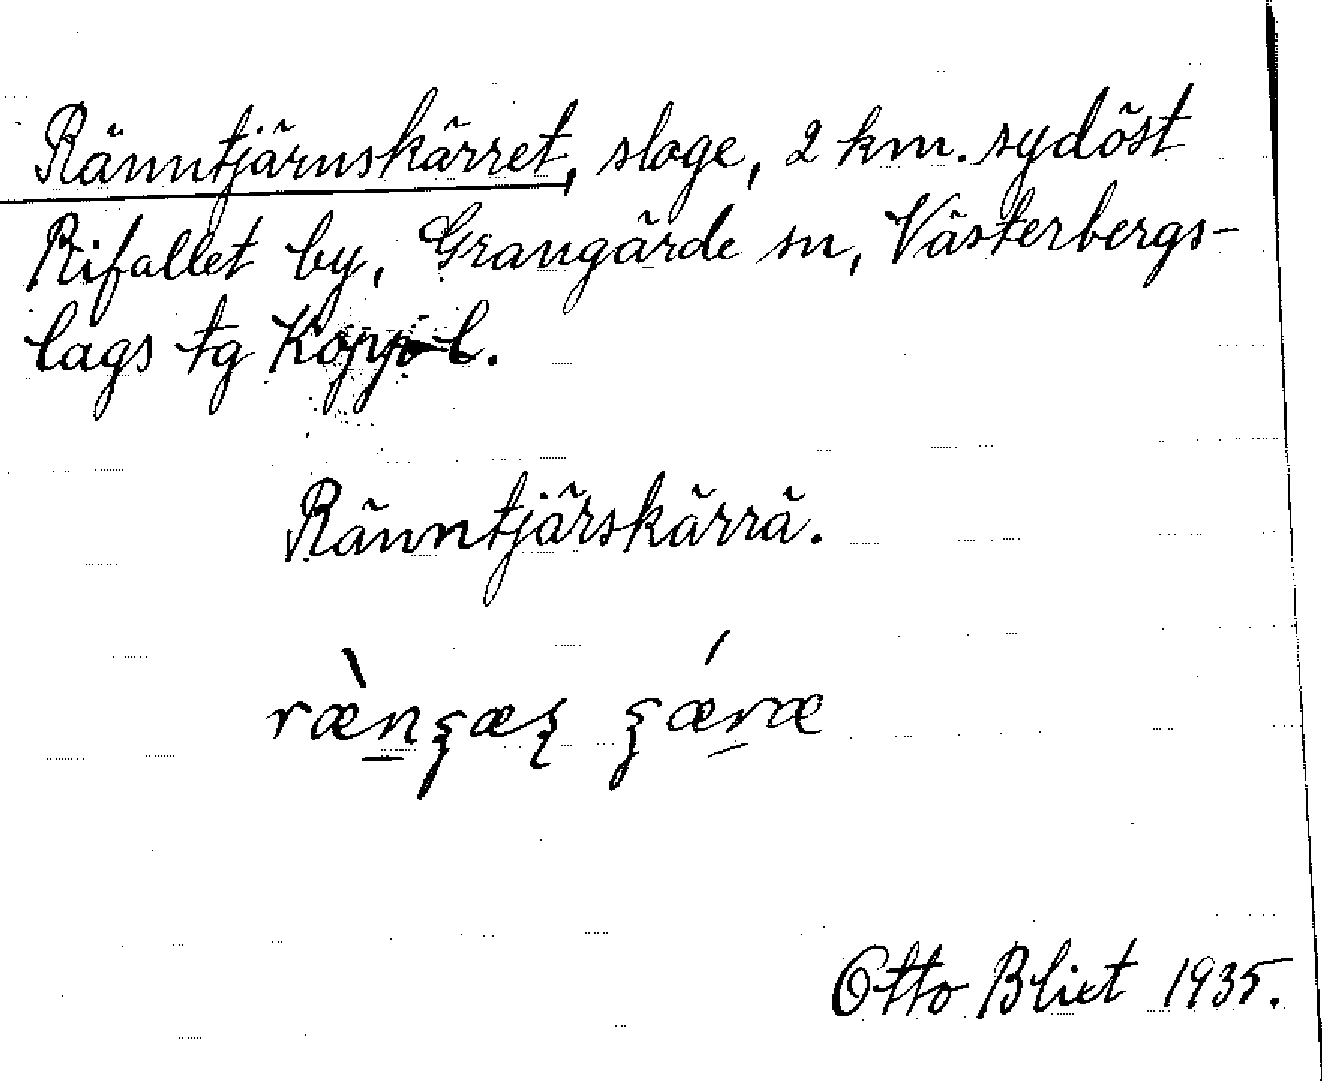 Ränntjärnskärret, sloge, 2 km. sydöst
Rifallet by, Grangärde sn, Västerbergs-
lags tg Kopp. l.
Ränntjärskärrä.
Otto Blixt 1935.